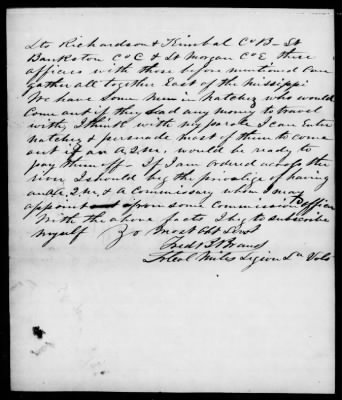 Lts Richardson & Kimbal Co B - Lt
Bankston Co C & Lt Morgan Co E these
officers with those before mentioned can
gather all together East of the Missippi
We have some men in Natchez who would
come out if they had any money to travel
with, I think with my parole I can Enter
Natchez & persuade most of them to come
out if an A.Q.M. would be ready to
pay them off - If I am ordered across the
river I should beg the privilege of having
an A.Q.M. & a Commissary whom I may
appoint from some Commissioned officer
With the above facts I beg to subscribe
myself Yo most Obt Servt
Fredk B Brand
Lt Col Miles Legion La Vols